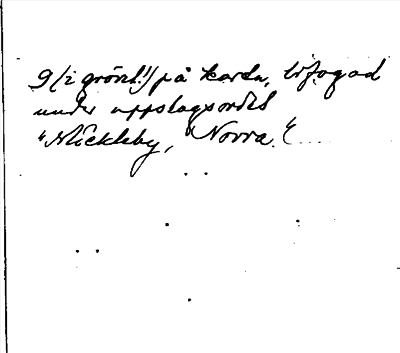 9 (i grönt!) på karta, bifogad
under uppslagsordet
"Mickleby, Norra."